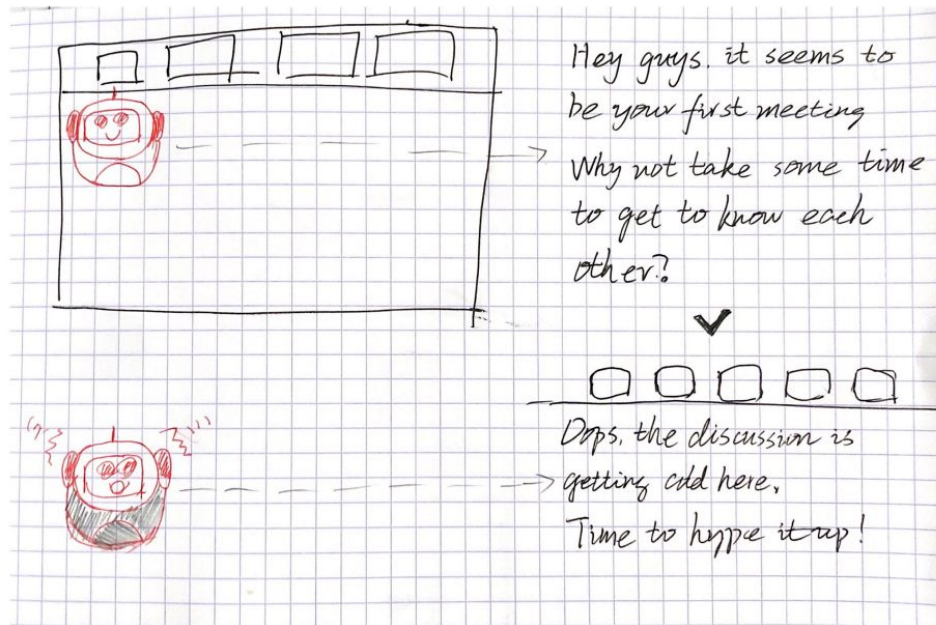 Hey guys. it seems to
be your first meeting
Why not take some time
to get to know each
other?
Oops, the discussion is
getting cold here.
Time to hype it up!